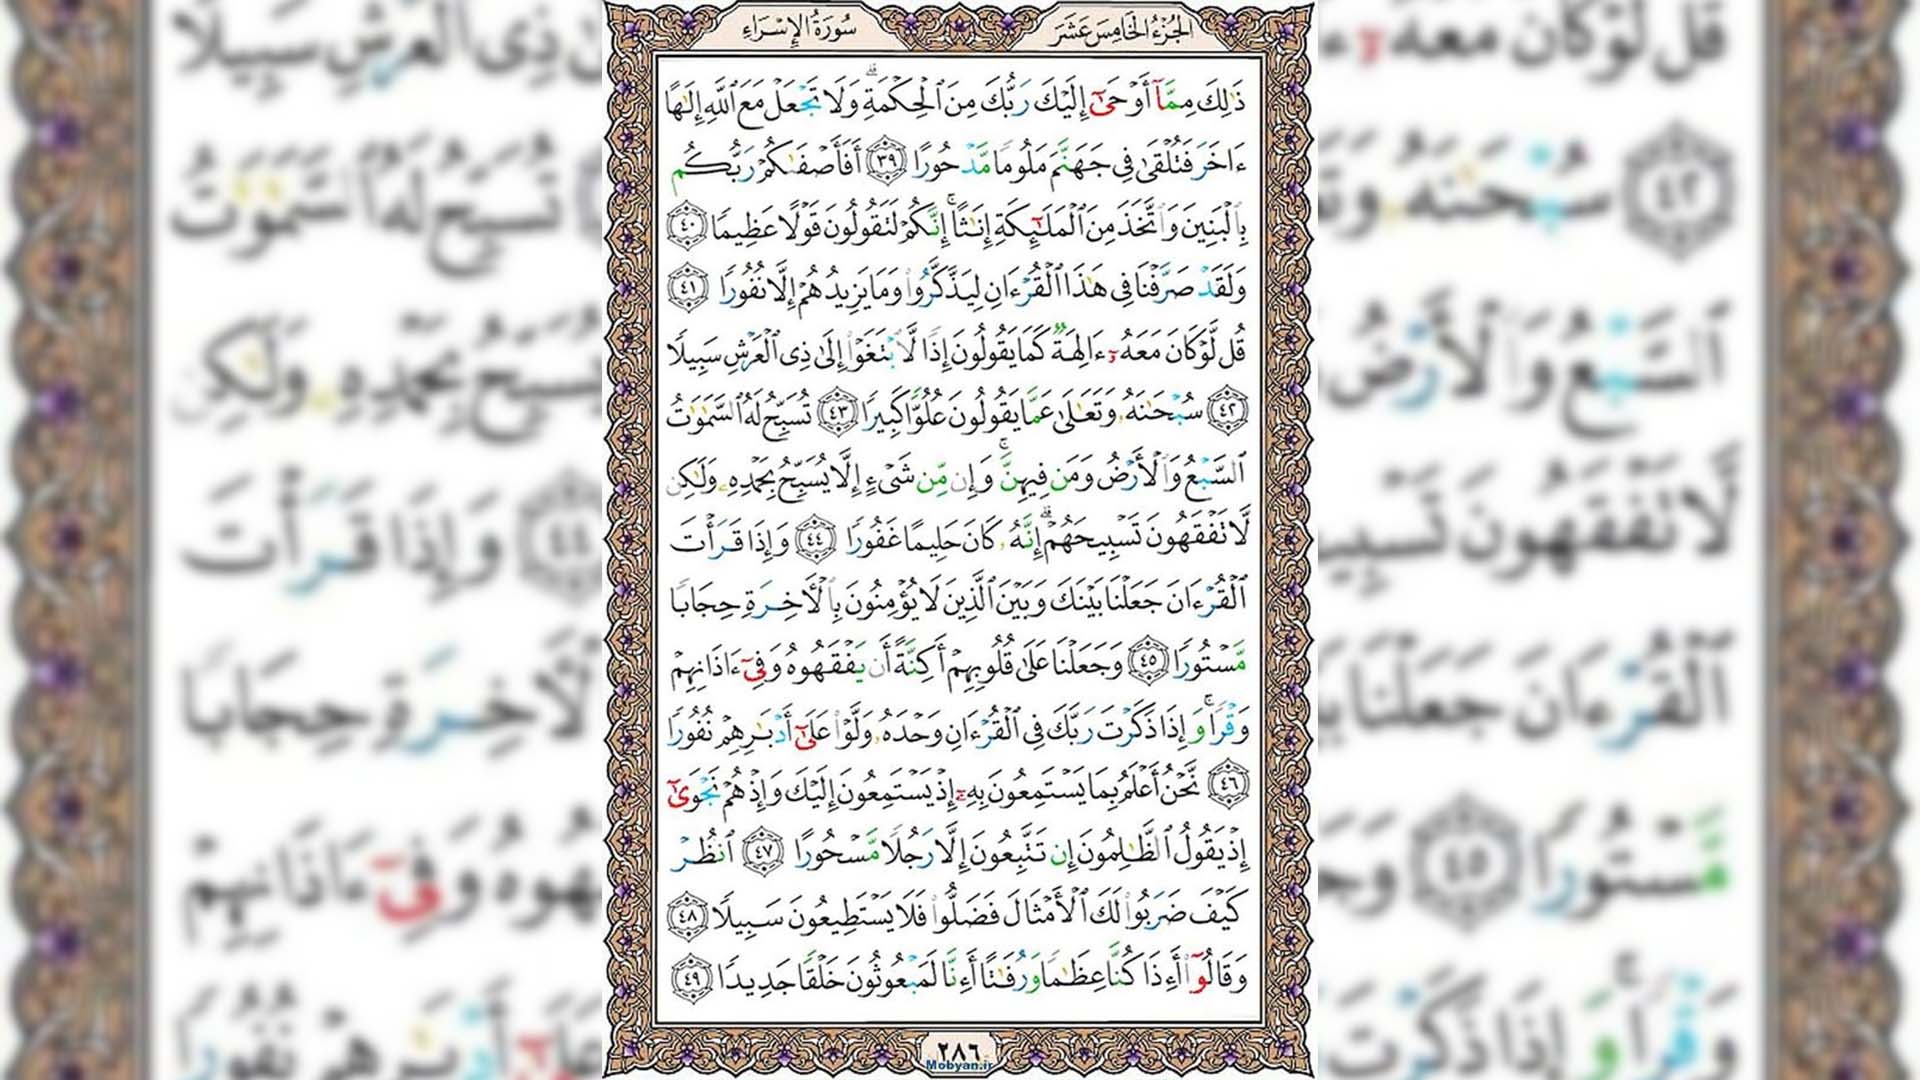 الجُزْءُ الخَامِسَ عَشَرَ
سُورَةُ الإِسْرَاءِ
ذَٰلِكَ مِمَّآ أَوْحَىٰٓ إِلَيْكَ رَبُّكَ مِنَ ٱلْحِكْمَةِۗ وَلَا تَجْعَلْ مَعَ ٱللَّهِ إِلَٰهًا
ءَاخَرَ فَتُلْقَىٰ فِي جَهَنَّمَ مَلُومًا مَّدْحُورًا ﴿٣٩﴾ أَفَأَصْفَىٰكُمْ رَبُّكُم
بِٱلْبَنِينَ وَٱتَّخَذَ مِنَ ٱلْمَلَٰٓئِكَةِ إِنَٰثًاۚ إِنَّكُمْ لَتَقُولُونَ قَوْلًا عَظِيمًا ﴿٤٠﴾
وَلَقَدْ صَرَّفْنَا فِي هَٰذَا ٱلْقُرْءَانِ لِيَذَّكَّرُوا۟ وَمَا يَزِيدُهُمْ إِلَّا نُفُورًا ﴿٤١﴾
قُل لَّوْ كَانَ مَعَهُۥٓ ءَالِهَةٌ كَمَا يَقُولُونَ إِذًا لَّٱبْتَغَوْا۟ إِلَىٰ ذِي ٱلْعَرْشِ سَبِيلًا
﴿٤٢﴾ سُبْحَٰنَهُۥ وَتَعَٰلَىٰ عَمَّا يَقُولُونَ عُلُوًّا كَبِيرًا ﴿٤٣﴾ تُسَبِّحُ لَهُ ٱلسَّمَٰوَٰتُ
ٱلسَّبْعُ وَٱلْأَرْضُ وَمَن فِيهِنَّۚ وَإِن مِّن شَيْءٍ إِلَّا يُسَبِّحُ بِحَمْدِهِۦ وَلَٰكِن
لَّا تَفْقَهُونَ تَسْبِيحَهُمْۗ إِنَّهُۥ كَانَ حَلِيمًا غَفُورًا ﴿٤٤﴾ وَإِذَا قَرَأْتَ
ٱلْقُرْءَانَ جَعَلْنَا بَيْنَكَ وَبَيْنَ ٱلَّذِينَ لَا يُؤْمِنُونَ بِٱلْأَخِرَةِ حِجَابًا
مَّسْتُورًا ﴿٤٥﴾ وَجَعَلْنَا عَلَىٰ قُلُوبِهِمْ أَكِنَّةً أَن يَفْقَهُوهُ وَفِيٓ ءَاذَانِهِمْ
وَقْرًاۚ وَإِذَا ذَكَرْتَ رَبَّكَ فِي ٱلْقُرْءَانِ وَحْدَهُۥ وَلَّوْا۟ عَلَىٰٓ أَدْبَٰرِهِمْ نُفُورًا
﴿٤٦﴾ نَّحْنُ أَعْلَمُ بِمَا يَسْتَمِعُونَ بِهِۦٓ إِذْ يَسْتَمِعُونَ إِلَيْكَ وَإِذْ هُمْ نَجْوَىٰٓ
إِذْ يَقُولُ ٱلظَّٰلِمُونَ إِن تَتَّبِعُونَ إِلَّا رَجُلًا مَّسْحُورًا ﴿٤٧﴾ ٱنظُرْ
كَيْفَ ضَرَبُوا۟ لَكَ ٱلْأَمْثَالَ فَضَلُّوا۟ فَلَا يَسْتَطِيعُونَ سَبِيلًا ﴿٤٨﴾
وَقَالُوٓا۟ أَءِذَا كُنَّا عِظَٰمًا وَرُفَٰتًا أَءِنَّا لَمَبْعُوثُونَ خَلْقًا جَدِيدًا ﴿٤٩﴾
٢٨٦
Mobyan.ir